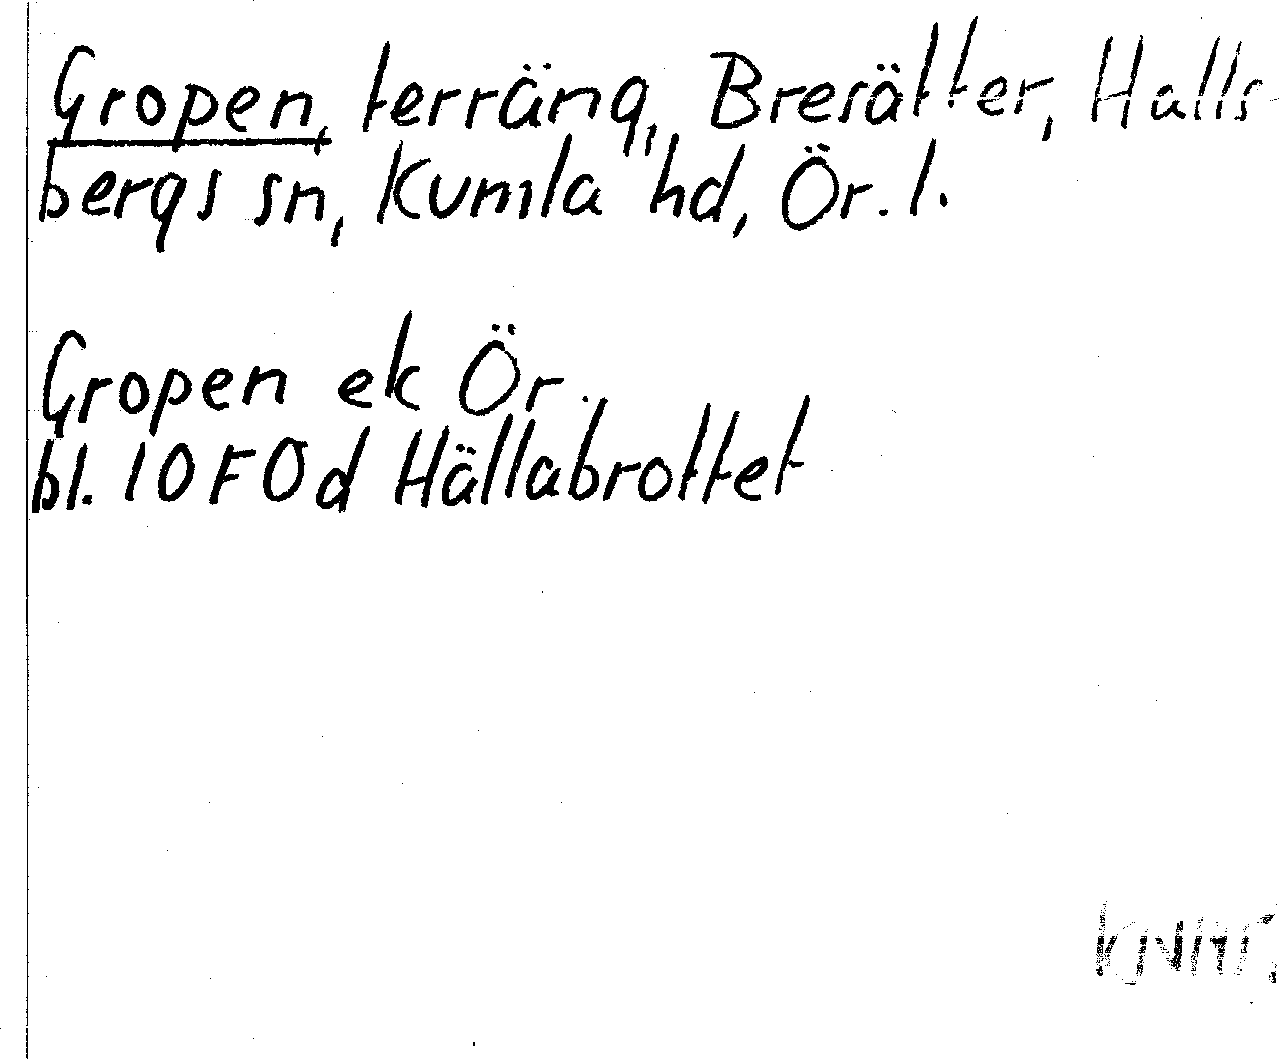 Gropen, terräng, Bresätter, Halls-
bergs sn, Kumla hd, Ör. l.
Gropen ek Ör.
bl. 10F0d Hällabrottet